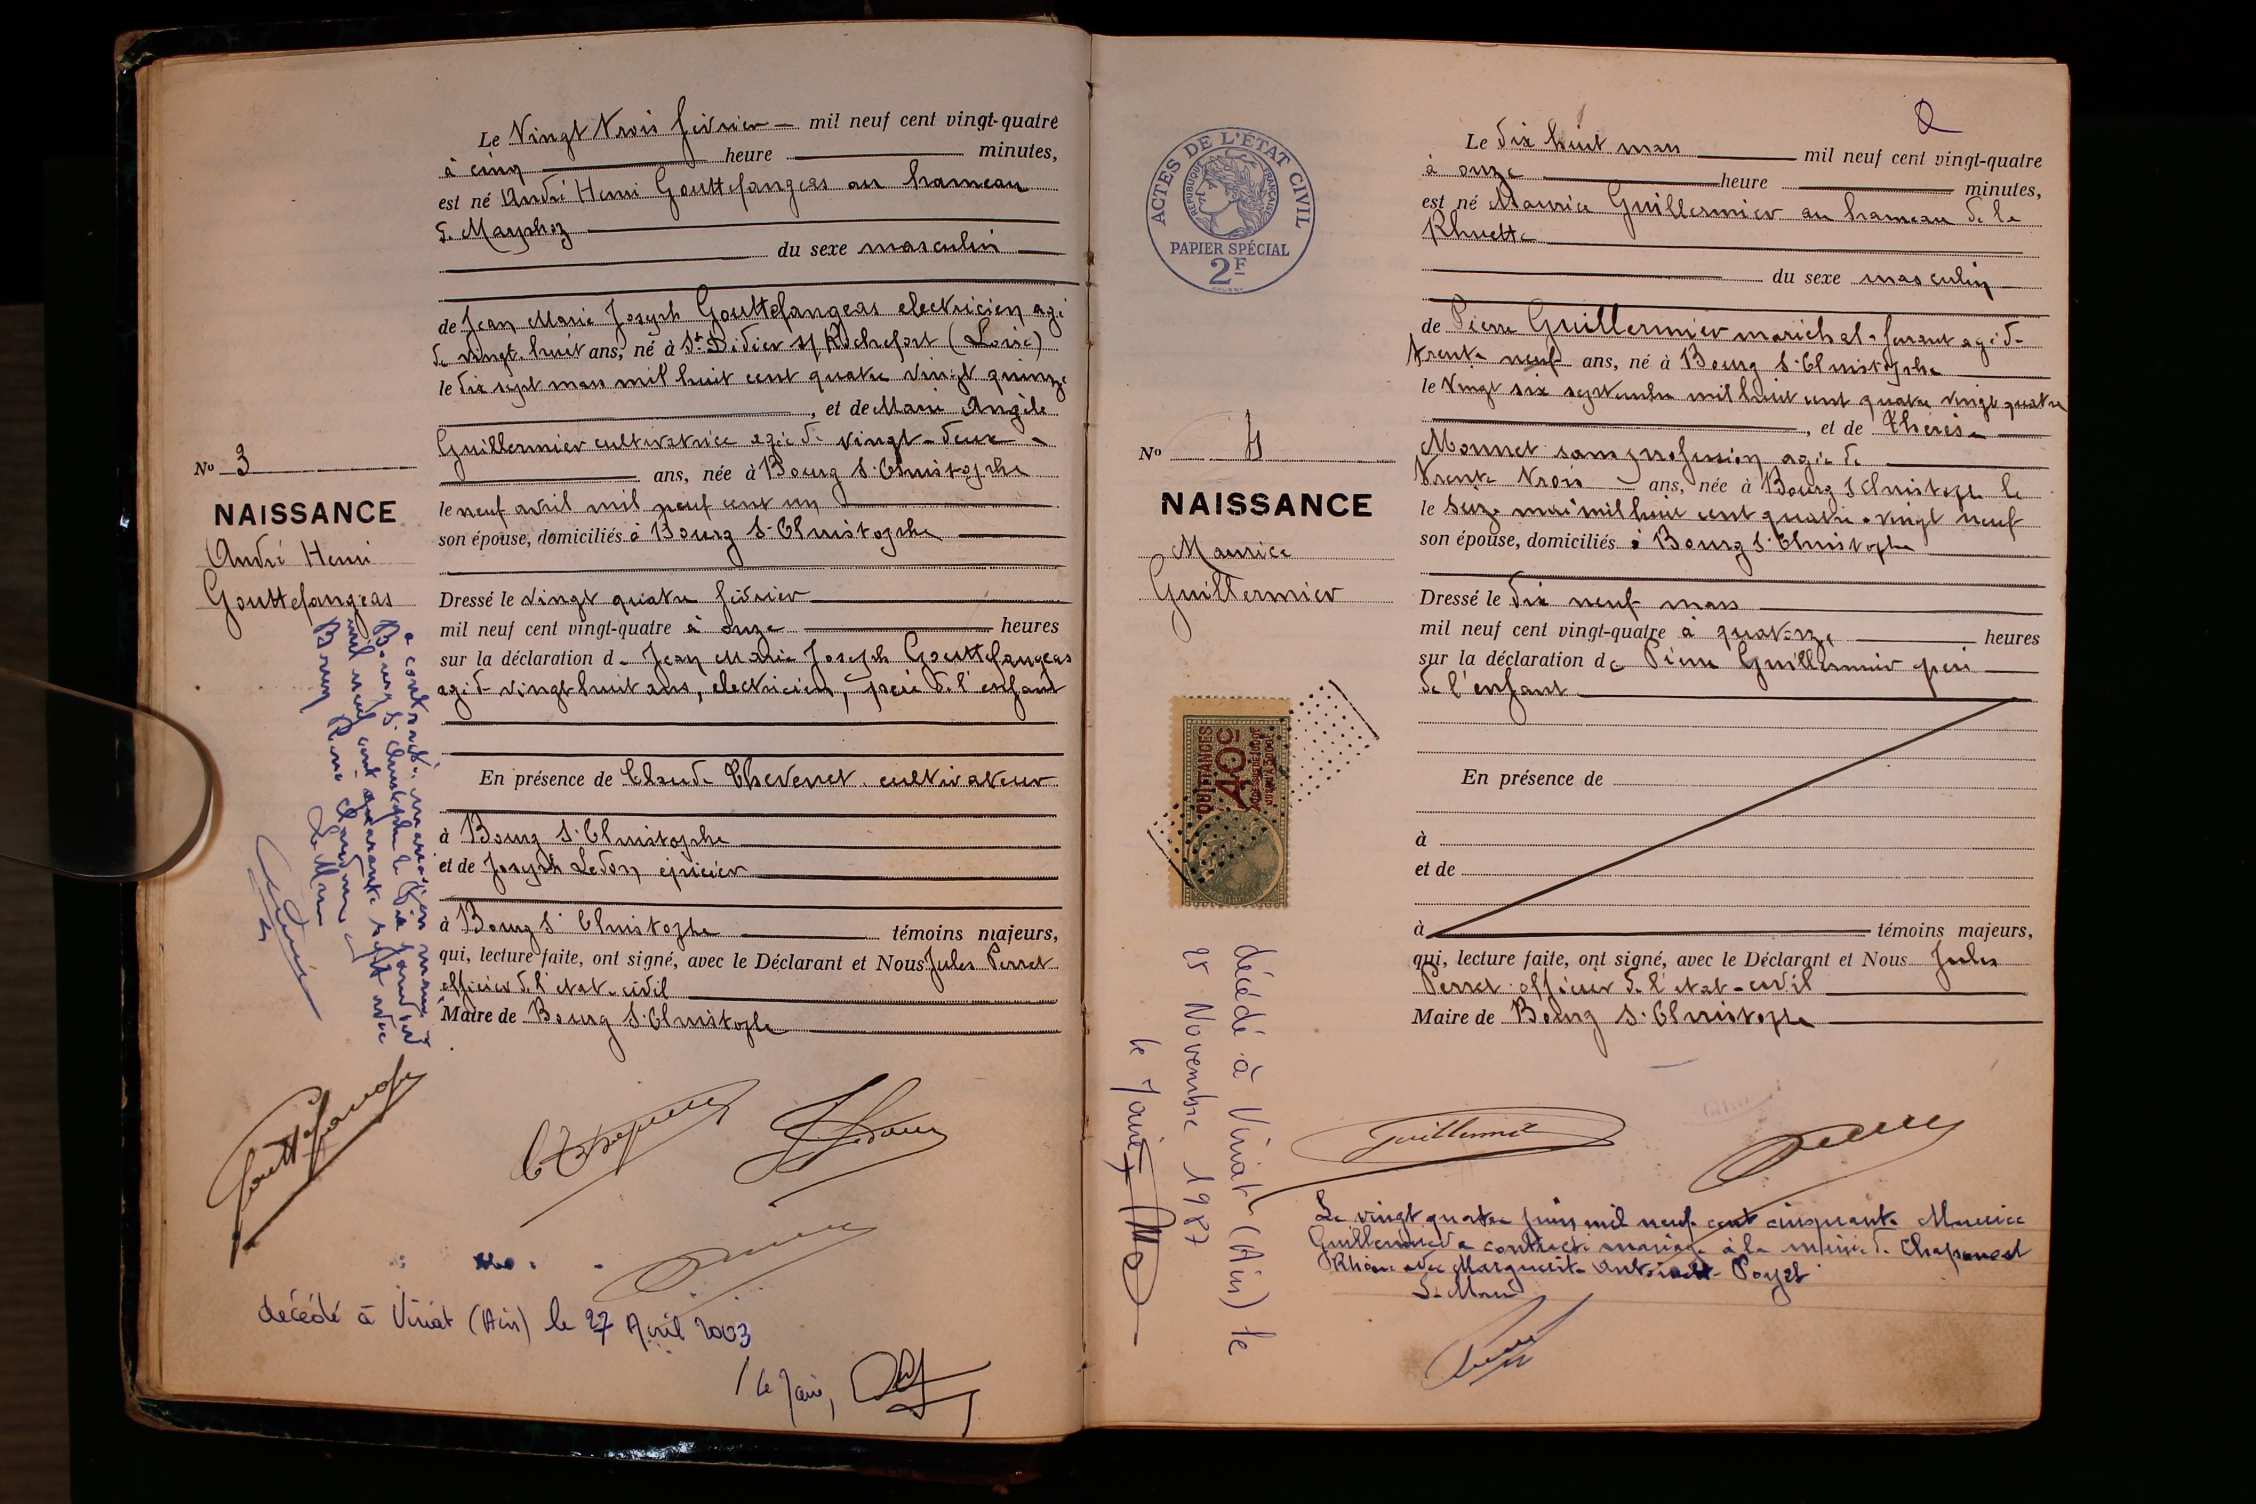 Le Vingt trois février mil neuf cent vingt-quatre
à cinq heure minutes,
est né André Henri Gouttefangeas au hameau
de
du sexe masculin
de Jean Marie Joseph Gouttefangeas electricien agé
de vingt-huit ans, né à St Didier s/ Rochefort (Loire)
le dix sept mars mil huit cent quatre vingt quinze
, et de Marie Angèle
Guillermier cultivatrice agée de vingt-deux
ans, née à Bourg St Christophe
le neuf avril mil neuf cent un
son épouse, domiciliés à Bourg St Christophe
No 3
NAISSANCE
André Henri
Gouttefangeas
Dressé le vingt quatre février
mil neuf cent vingt-quatre à onze heures
sur la déclaration de Jean Marie Joseph Gouttefangeas
agé de vingt huit ans, electricien, père de l'enfant
En présence de Claude Thevenet cultivateur
à Bourg St Christophe
et de Joseph Ledon épicier
à Bourg St Christophe témoins majeurs,
qui, lecture faite, ont signé, avec le Déclarant et Nous Jules Perret
officier de l'etat-civil
Maire de Bourg St Christophe
a contracté mariage en mairie
Bourg St Christophe le
mil neuf cent quarante sept avec
Le Maire
décédé à Viriat (Ain) le 27 Avril 2003
le Maire,
ACTES DE L'ÉTAT CIVIL
RÉPUBLIQUE FRANÇAISE
PAPIER SPÉCIAL
2F
Le dix huit mars mil neuf cent vingt-quatre
à onze heure minutes,
est né Maurice Guillermier au hameau de la
Rhuette
du sexe masculin
de Pierre Guillermier maréchal-ferrant agé de
trente neuf ans, né à Bourg St Christophe
le vingt six septembre mil huit cent quatre vingt quatre
, et de Thérèse
Monnet sans profession agée de
trente trois ans, née à Bourg St Christophe le
le seize mai mil huit cent quatre-vingt neuf
son épouse, domiciliés à Bourg St Christophe
No 4
NAISSANCE
Maurice
Guillermier
Dressé le dix neuf mars
mil neuf cent vingt-quatre à quatorze heures
sur la déclaration de Pierre Guillermier père
de l'enfant
En présence de
à
et de
à témoins majeurs,
qui, lecture faite, ont signé, avec le Déclarant et Nous Jules
Perret officier de l'etat-civil
Maire de Bourg St Christophe
QUITTANCES
40c
décédé à Viriat (Ain) le
25 Novembre 1987
le Maire
Guillermier
Le vingt quatre juin mil neuf cent cinquante Maurice
Guillermier a contracté mariage à la mairie de Chaponost
Rhône avec Marguerite Antoinette Poyet
Le Maire